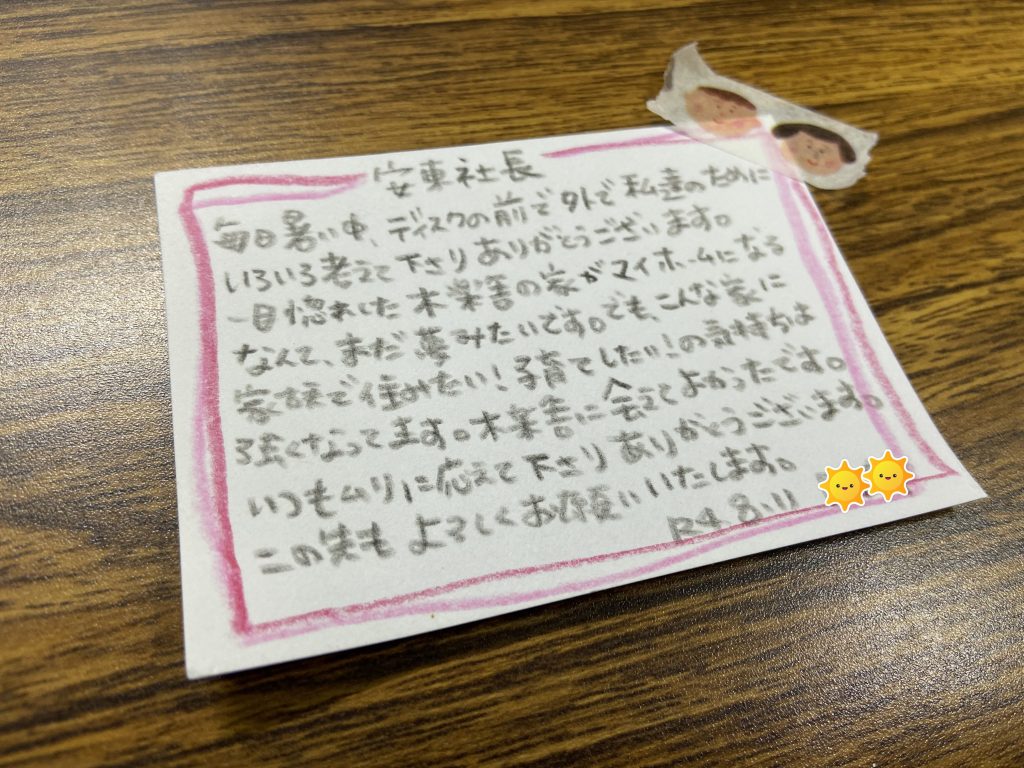 安東社長
毎日暑い中、ディスクの前で外で私達のために
いろいろ考えて下さりありがとうございます。
一目惚れした木楽舎の家がマイホームになる
なんて、まだ夢みたいです。でも、こんな家に
家族で住みたい!子育てしたい!の気持ちは
強くなってます。木楽舎に会えてよかったです。
いつもムリに応えて下さりありがとうございます。
この先もよろしくお願いいたします。
R4.8.11